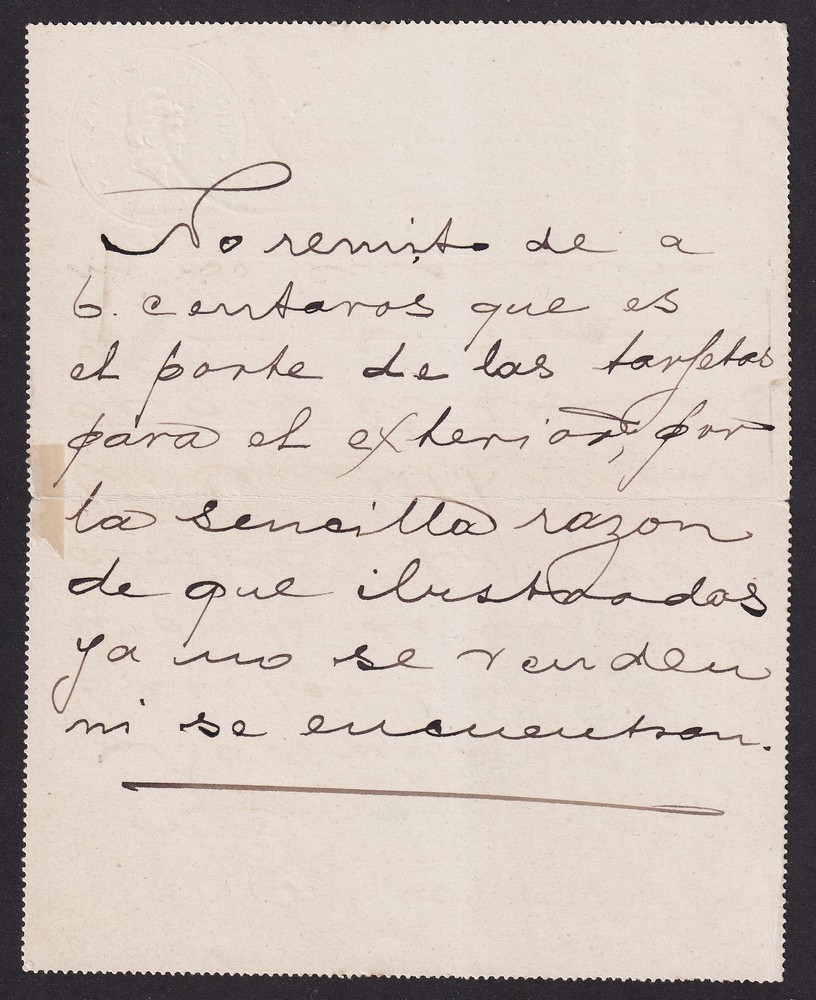 No remito de a
6. centavos que es
el porte de las tarjetas
para el exterior, por
la sencilla razon
de que ilustradas
ya no se venden
ni se encuentran.